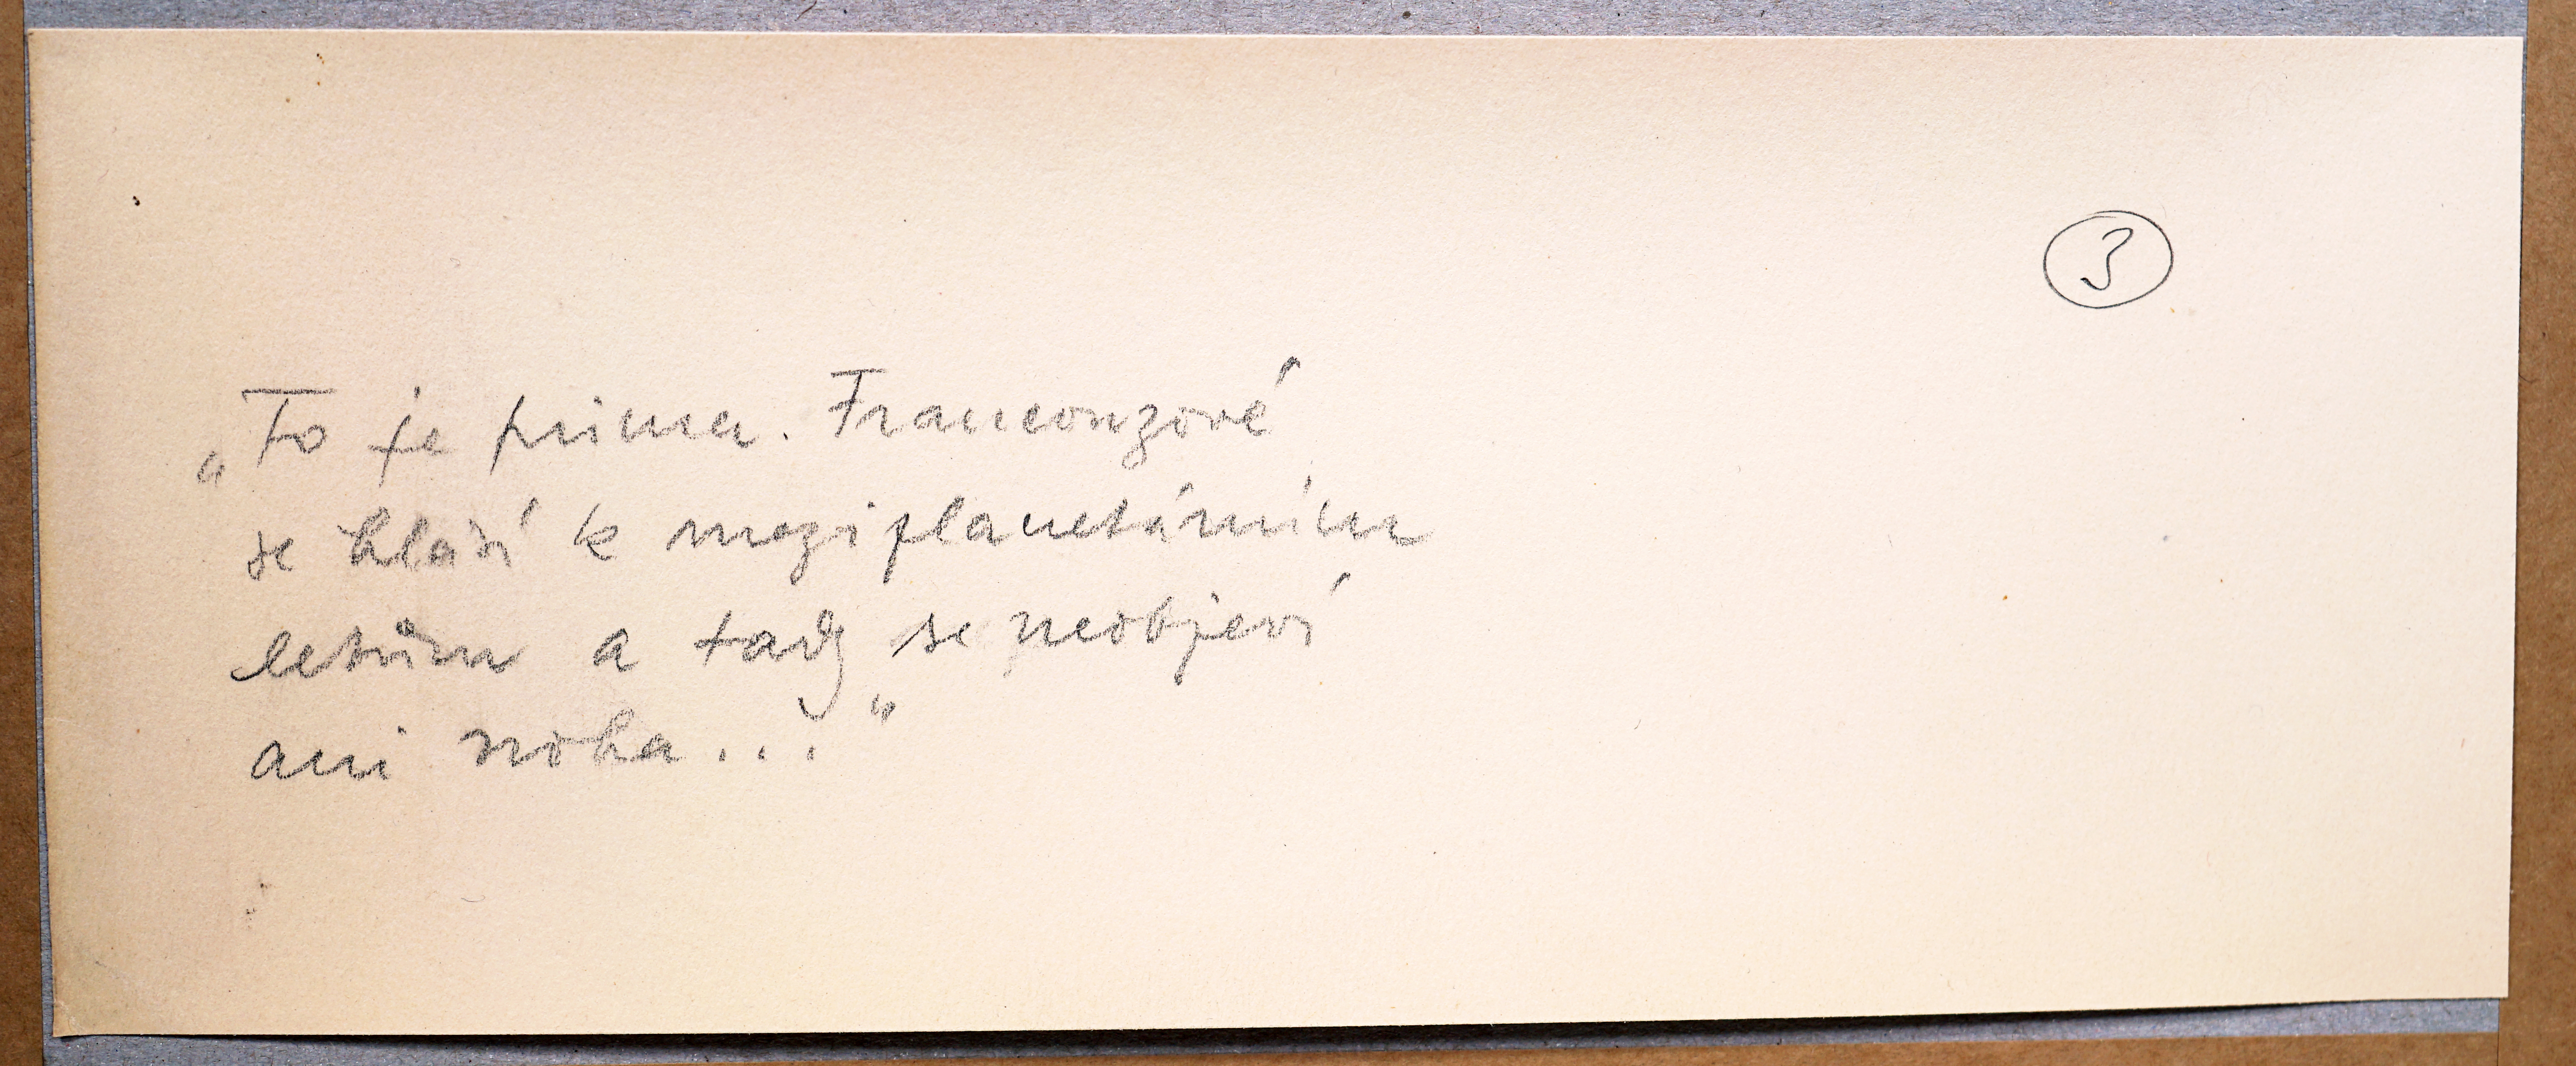 3
„To je prima. Francouzové
se hlásí k meziplanetárním
letům a tady se neobjeví
ani noha..."